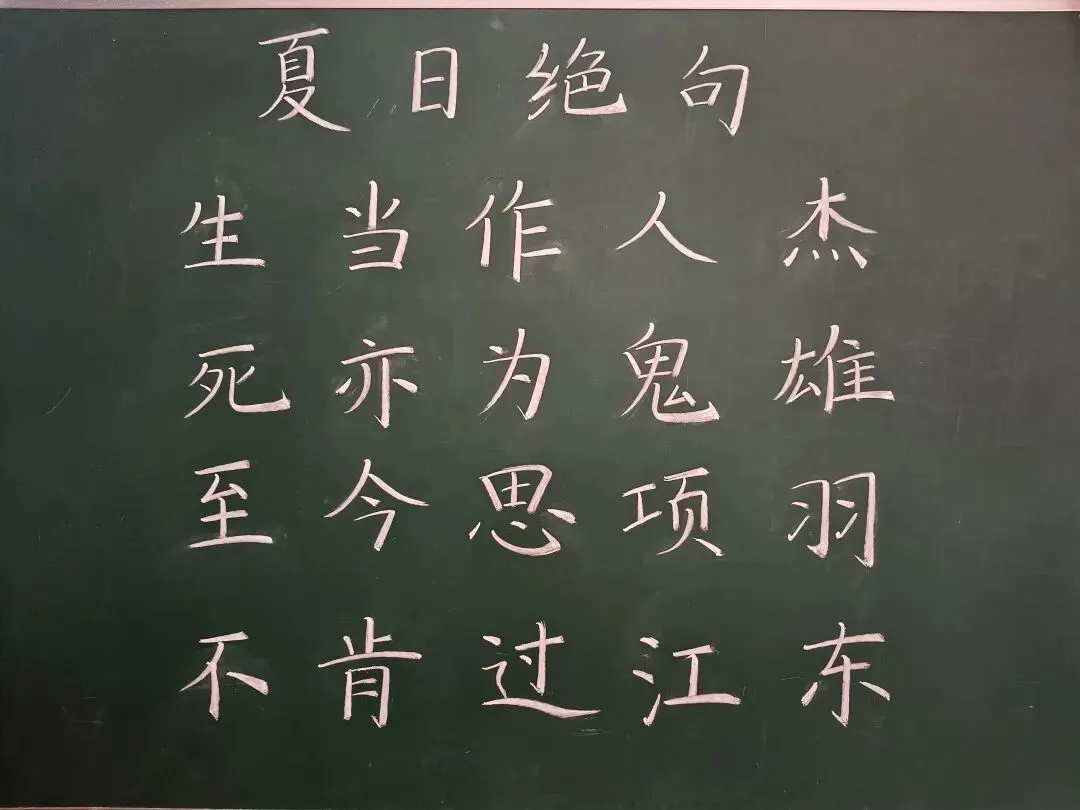 夏日绝句
生当作人杰
死亦为鬼雄
至今思项羽
不肯过江东